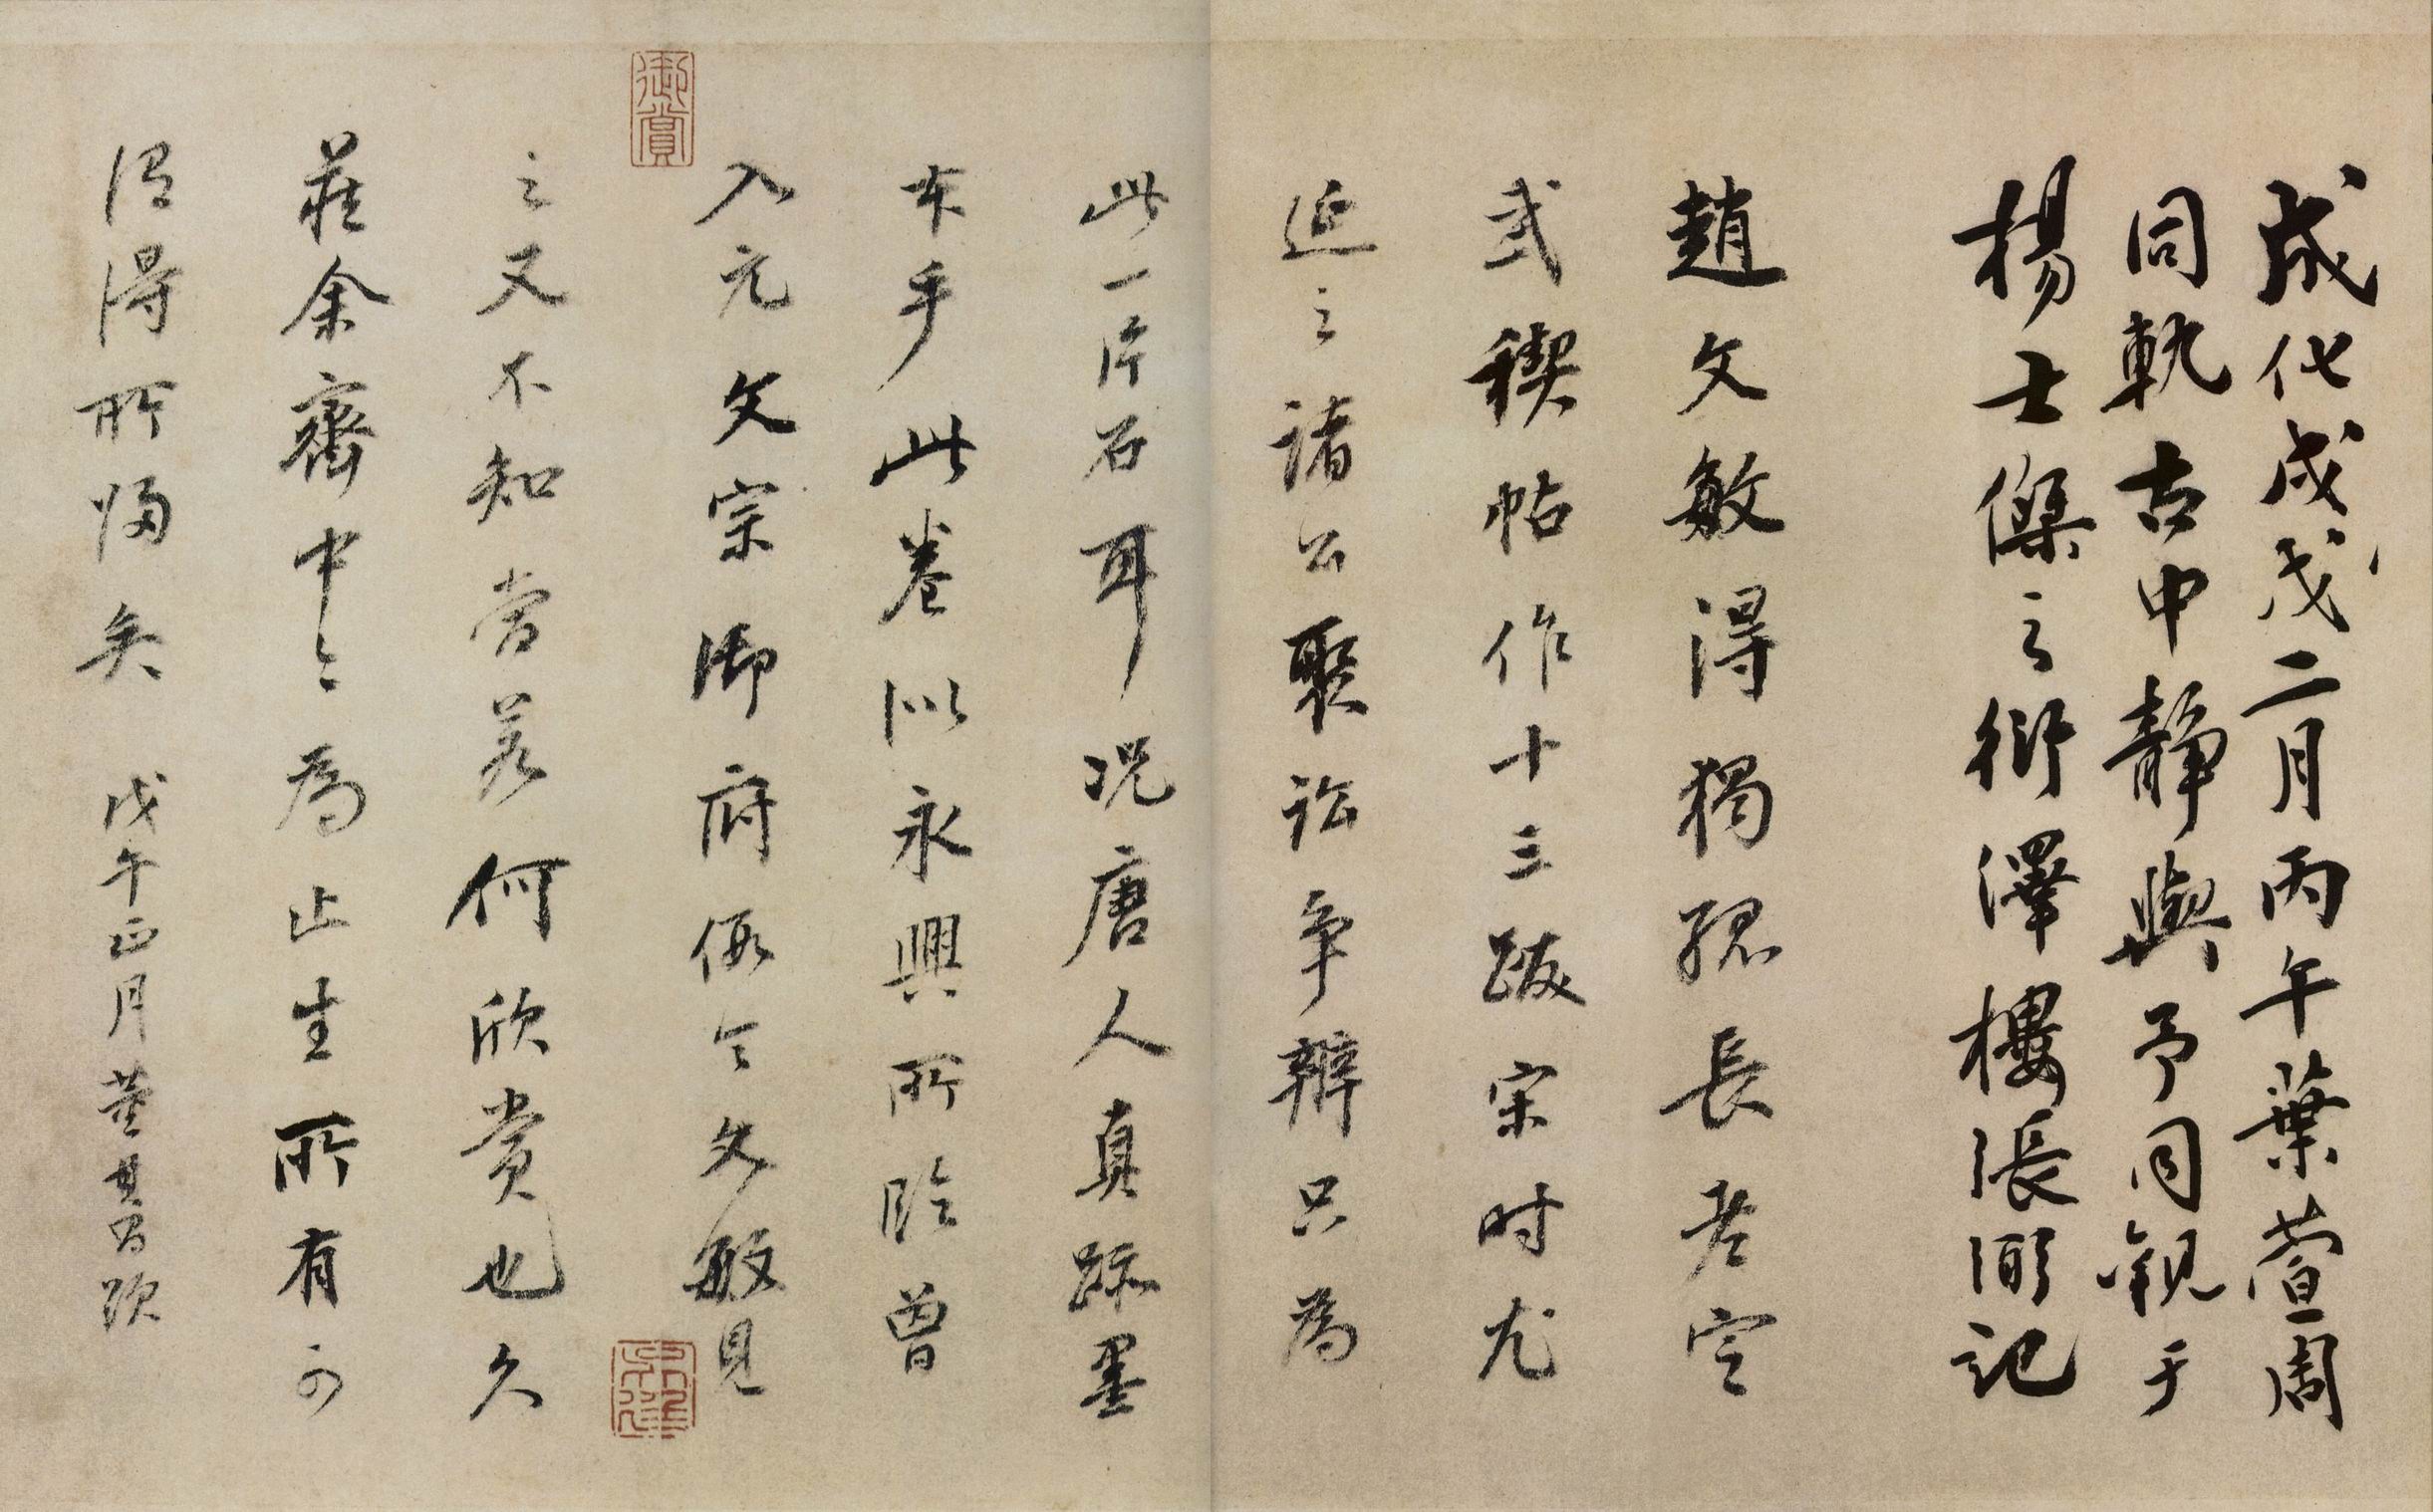 成化戌戊二月丙午葉萱周
同軌古中靜與予同觀于
楊士傑之衍澤樓張弼記
趙文敏得獨孤長老定
武禊帖作十三跋宋時尤
延之諸公聚訟爭辨只為
此一片石耳況唐人真跡墨
本乎此卷似永興所臨曾
入元文宗御府假令文敏見
之又不知當若何欣賞也久
藏余齋中今為止生所有可
謂得所歸矣 戊午正月董其昌題
御賞